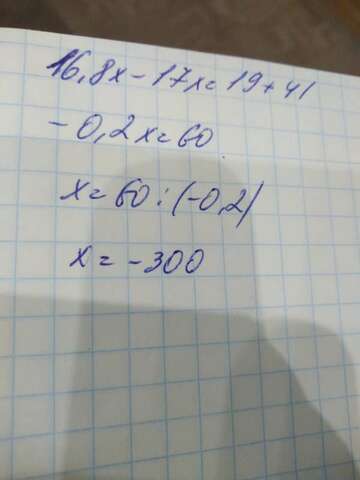 16,8x - 17x = 19 + 41
- 0,2x = 60
x = 60 : (-0,2)
x = - 300